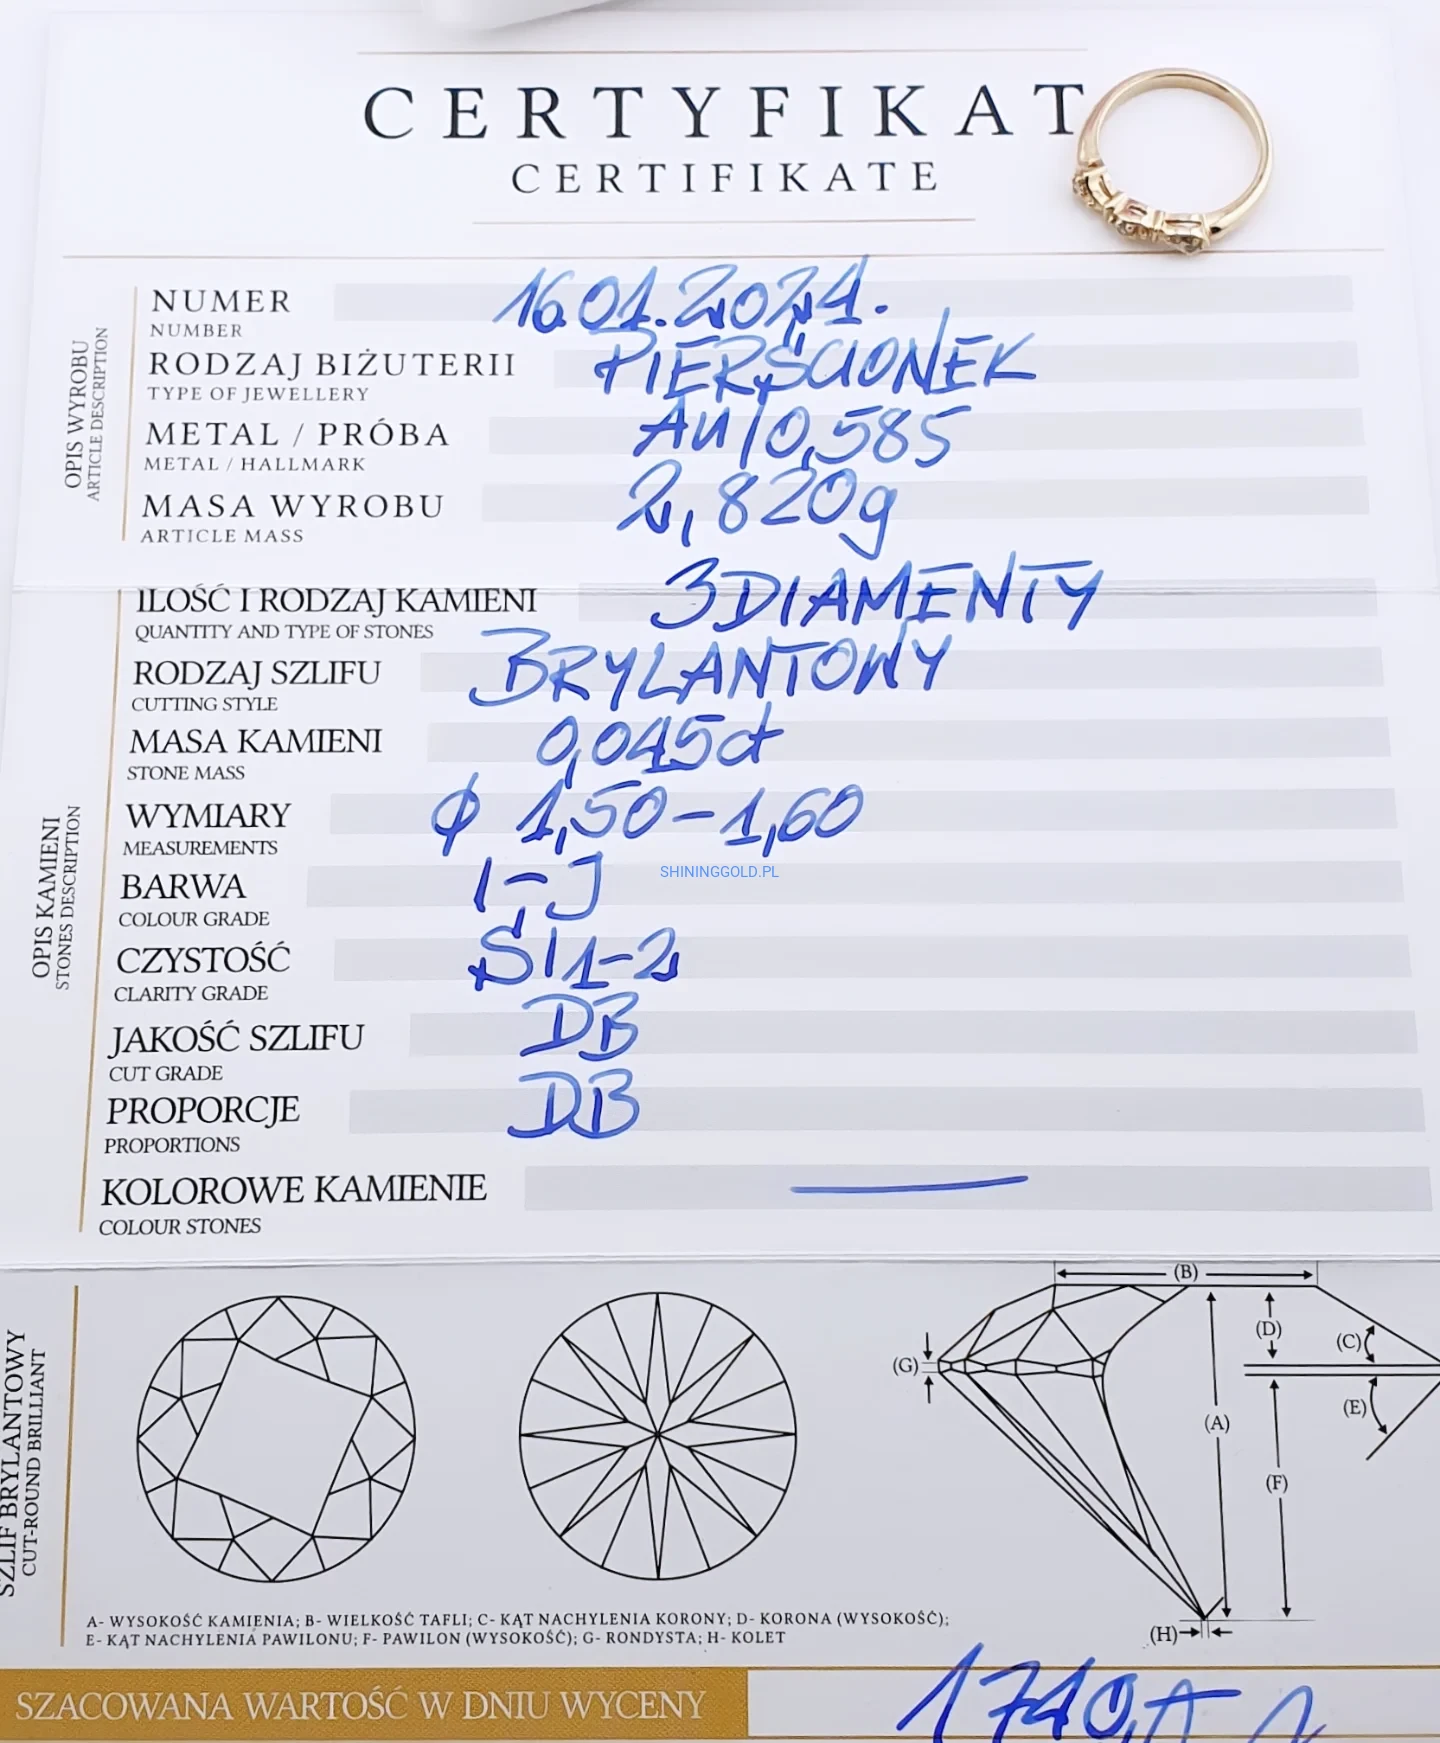 CERTYFIKAT
CERTIFIKATE
OPIS WYROBU
ARTICLE DESCRIPTION
NUMER 16.01.2024.
NUMBER
RODZAJ BIŻUTERII PIERŚCIONEK
TYPE OF JEWELLERY
METAL / PRÓBA Au/0,585
METAL / HALLMARK
MASA WYROBU 2,820g
ARTICLE MASS
OPIS KAMIENI
STONES DESCRIPTION
ILOŚĆ I RODZAJ KAMIENI 3 DIAMENTY
QUANTITY AND TYPE OF STONES
RODZAJ SZLIFU BRYLANTOWY
CUTTING STYLE
MASA KAMIENI 0,045ct
STONE MASS
WYMIARY ϕ 1,50-1,60
MEASUREMENTS
BARWA I-J
COLOUR GRADE
SHININGGOLD.PL
CZYSTOŚĆ SI1-2
CLARITY GRADE
JAKOŚĆ SZLIFU DB
CUT GRADE
PROPORCJE DB
PROPORTIONS
KOLOROWE KAMIENIE
COLOUR STONES
SZLIF BRYLANTOWY
CUT-ROUND BRILLIANT
(B)
(D)
(C)
(G)
(E)
(A)
(F)
(H)
A- WYSOKOŚĆ KAMIENIA; B- WIELKOŚĆ TAFLI; C- KĄT NACHYLENIA KORONY; D- KORONA (WYSOKOŚĆ);
E- KĄT NACHYLENIA PAWILONU; F- PAWILON (WYSOKOŚĆ); G- RONDYSTA; H- KOLET
SZACOWANA WARTOŚĆ W DNIU WYCENY